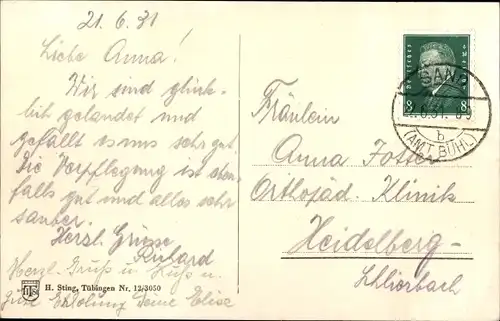 21. 6. 31
Liebe Anna!
Wir sind glück-
lich gelandet und
gefällt es uns sehr gut.
Die Verpflegung ist eben-
falls gut und alles sehr
sauber.
Herzl. Grüsse
Herzl. Gruß u. Kuß u.
gute Erholung Deine Elise
H. Sting, Tübingen Nr. 12/3050
Deutsches Reich
8 8
SAND
(AMT BÜHL)
b
Fräulein
Anna
Orthopäd. Klinik
Heidelberg-
Schlierbach